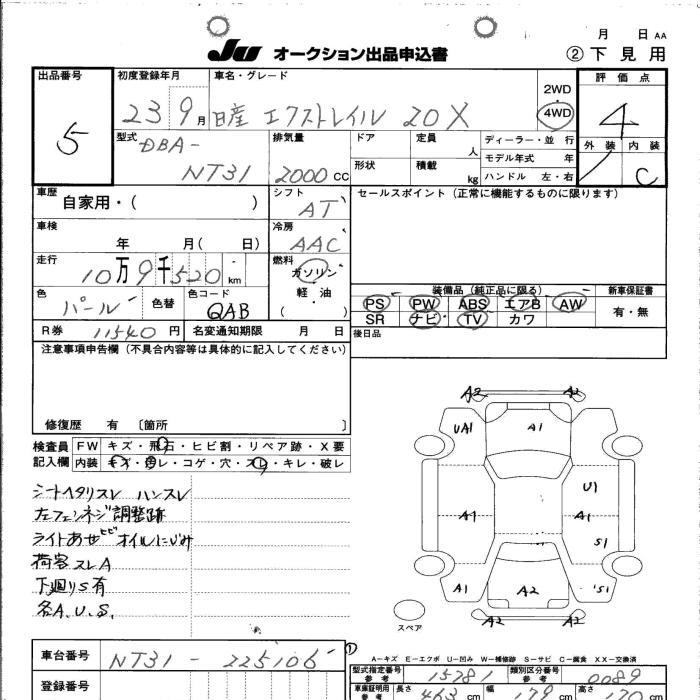 月 日 AA
JU オークション出品申込書 ②下見用
出品番号 初度登録年月 車名・グレード 2WD・4WD 評価点
5 23 9月 日産 エクストレイル 20X 4
型式 排気量 ドア 定員 人 ディーラー・並 行 外装 内装
DBA- モデル年式 年
NT31 2000 cc 形状 積載 kg ハンドル 左・右 C
車歴 自家用・( ) シフト AT セールスポイント(正常に機能するものに限ります)
車検 年 月( 日) 冷房 AAC
走行 10万9千520km 燃料 ガソリン・軽油・( )
装備品(純正品に限る) 新車保証書
色 パール 色替 色コード QAB PS PW ABS エアB AW 有・無
SR ナビ TV カワ
R券 11540円 名変通知期限 月 日 後日品
注意事項申告欄(不具合内容等は具体的に記入してください)
修復歴 有 〔箇所 〕
検査員記入欄 FW キズ・飛石・ヒビ割・リペア跡・X要
内装 キズ・汚レ・コゲ・穴・スレ・キレ・破レ
シートヘタリスレ ハンスレ
左フェンネジ調整跡
ライトあせヒビ オイルにじみ
荷室スレA
下廻りS有
各A.U.S.
A2 A2
UA1 A1
U1
A1 A1
S1
A1 A2 S1
A2 A2
スペア
車台番号 NT31-225106 ①
A-キズ E-エクボ U-凹み W-補修跡 S-サビ C-腐食 XX-交換済
型式指定番号 参考 15781 類別区分番号 参考 0089
登録番号 車庫証明用 参考 長さ 463 cm 幅 179 cm 高さ 170 cm